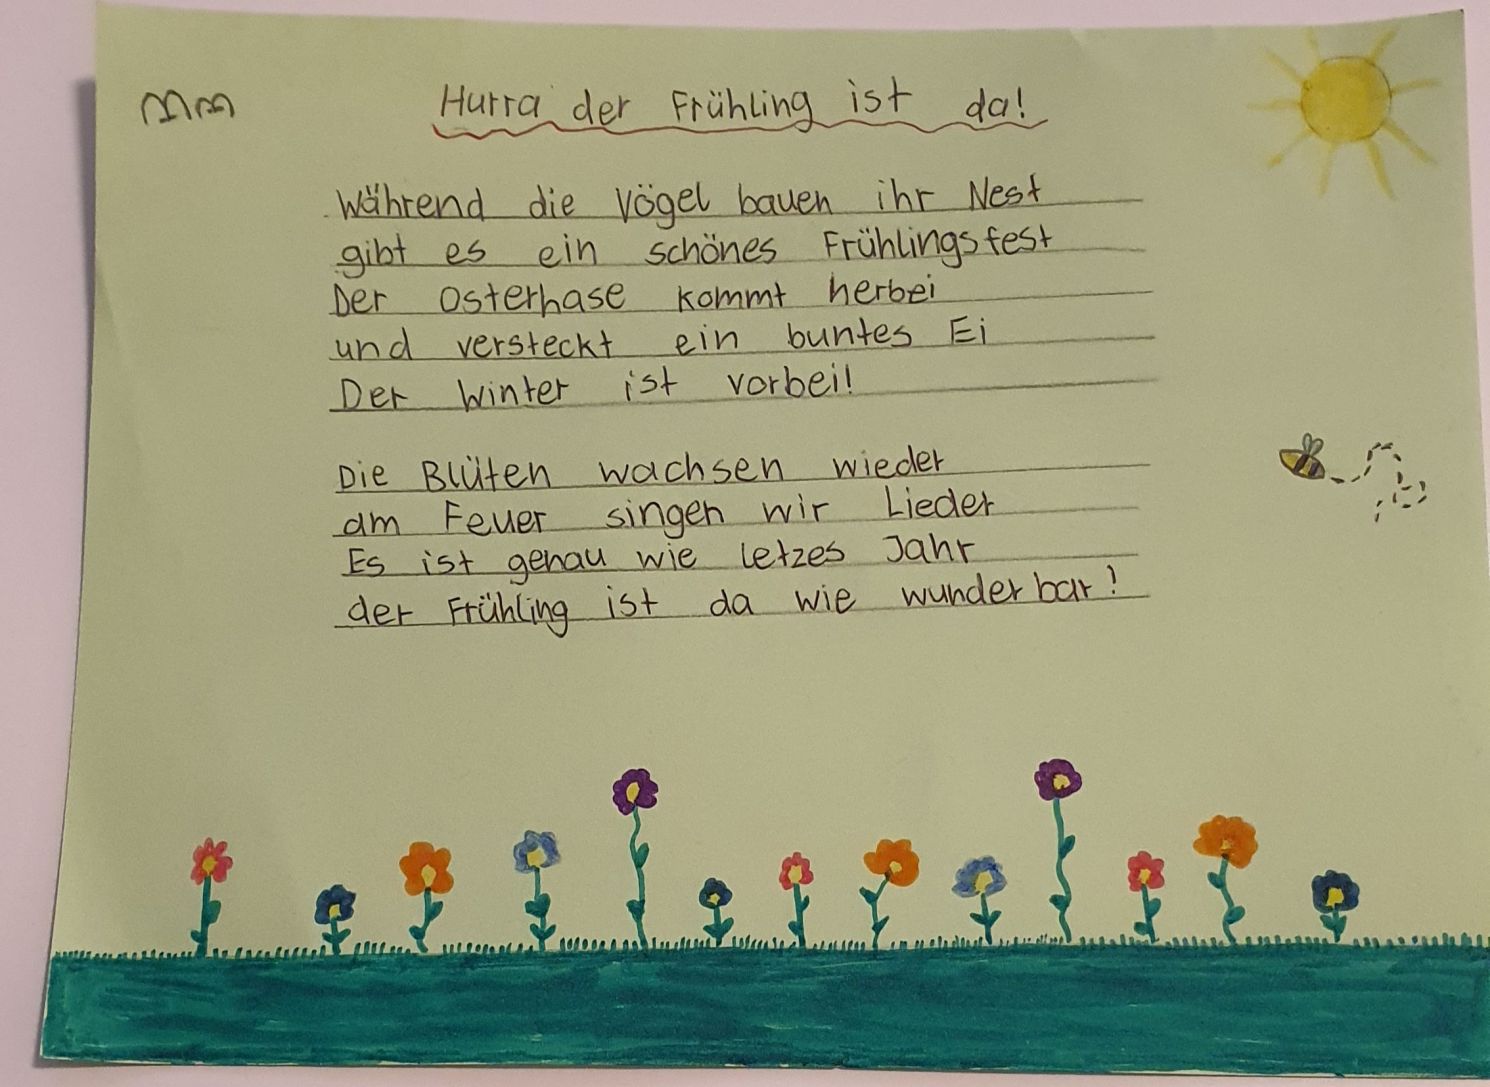 Hurra der Frühling ist da!
Während die Vögel bauen ihr Nest
gibt es ein schönes Frühlingsfest
Der Osterhase kommt herbei
und versteckt ein buntes Ei
Der Winter ist vorbei!
Die Blüten wachsen wieder
am Feuer singen wir Lieder
Es ist genau wie letzes Jahr
der Frühling ist da wie wunderbar!